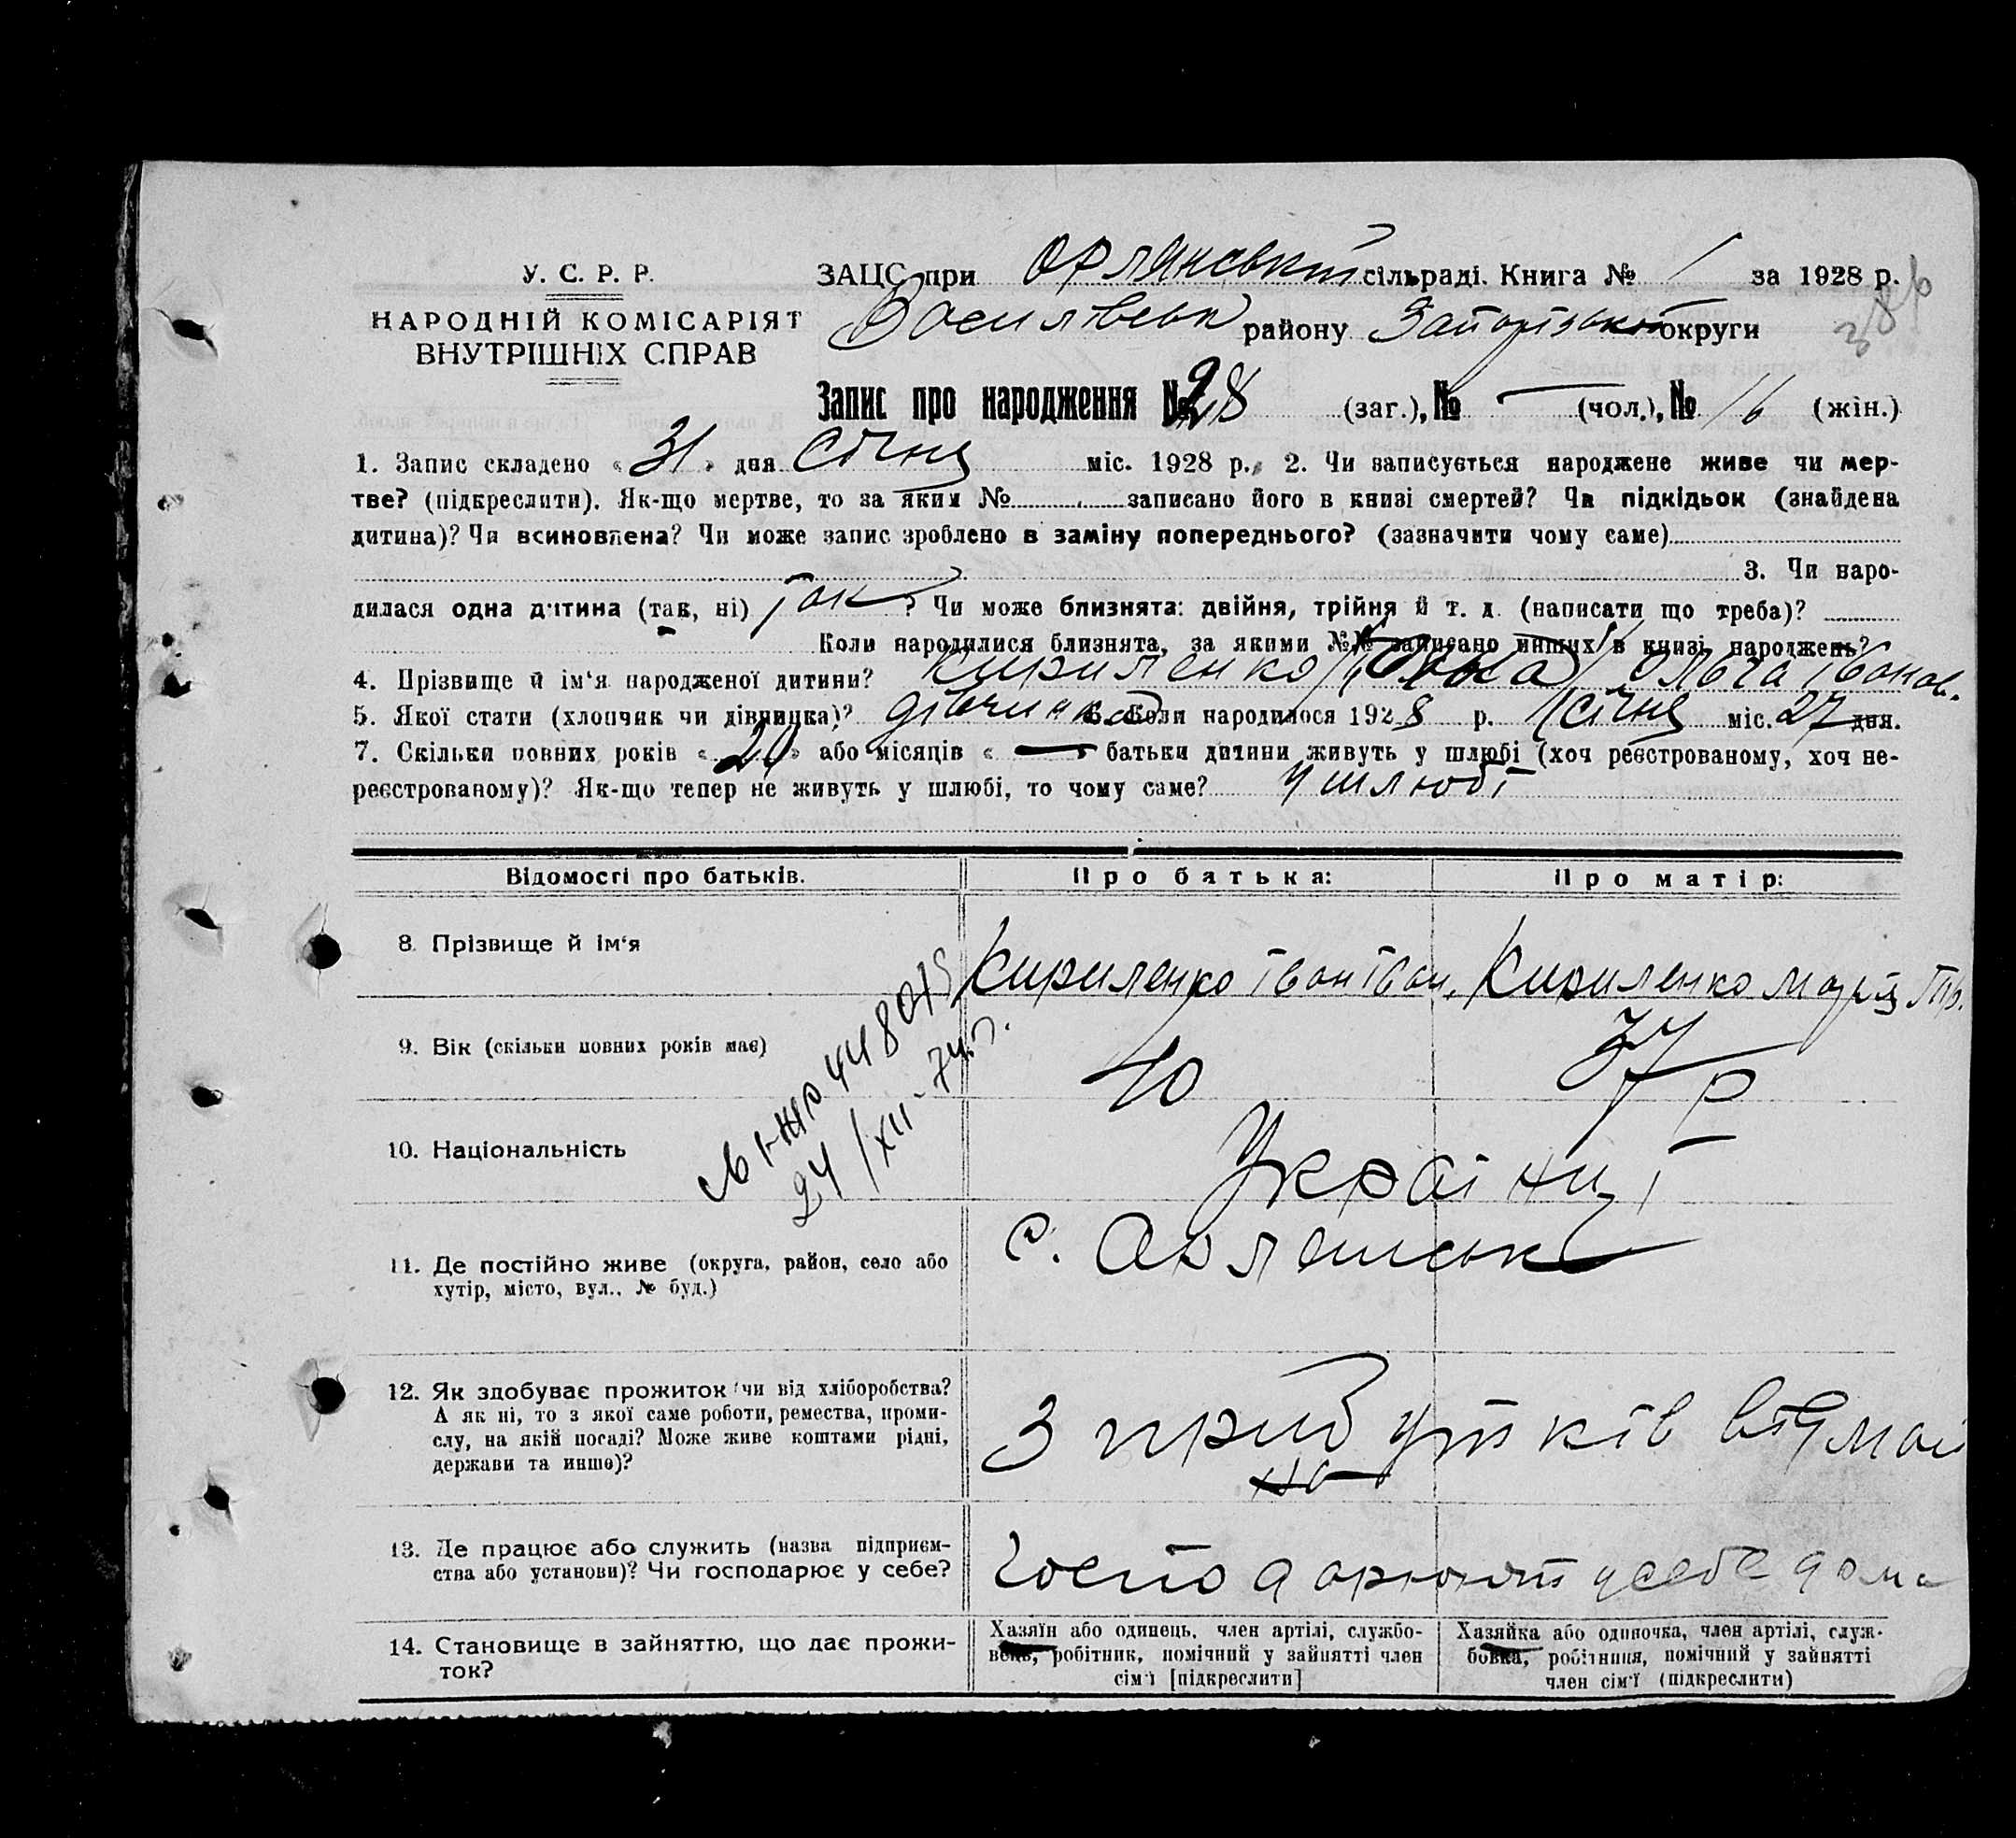 У. С. Р. Р.
НАРОДНІЙ КОМІСАРІЯТ
ВНУТРІШНІХ СПРАВ
ЗАЦС при Орлянській сільраді. Книга № 1 за 1928 р.
Василівськ району Запорізької округи
386
Запис про народження № 28 (заг.), № — (чол.), № 16 (жін.)
1. Запис складено «31» дня січня міс. 1928 р. 2. Чи записується народжене живе чи мер-
тве? (підкреслити). Як-що мертве, то за яким № записано його в книзі смертей? Чи підкідьок (знайдена
дитина)? Чи всиновлена? Чи може запис зроблено в заміну попереднього? (зазначити чому саме)
3. Чи наро-
дилася одна дитина (так, ні) так? Чи може близнята: двійня, трійня й т. д. (написати що треба)?
Коли народилися близнята, за якими №№ записано инших в книзі народжень?
4. Прізвище й ім'я народженої дитини? Кириленко Ольга Іванов.
5. Якої стати (хлопчик чи дівчинка)? дівчинка 6. Коли народилося 1928 р. січня міс. 27 дня.
7. Скільки повних років «20» або місяців « — » батьки дитини живуть у шлюбі (хоч реєстрованому, хоч не-
реєстрованому)? Як-що тепер не живуть у шлюбі, то чому саме? У шлюбі
Відомості про батьків. Про батька: Про матір:
8. Прізвище й ім'я Кириленко Іван Іван. Кириленко Марія
9. Вік (скільки повних років має) 40 37 р
448075
24/XII-74 г.
10. Національність Українці
11. Де постійно живе (округа, район, село або
хутір, місто, вул., № буд.)
с. Орлянськ
12. Як здобуває прожиток чи від хліборобства?
А як ні, то з якої саме роботи, ремества, проми-
слу, на якій посаді? Може живе коштами рідні,
держави та инше)?
З прибутків від
13. Де працює або служить (назва підприєм-
ства або установи)? Чи господарює у себе?
Господарюють у себе дома
14. Становище в зайняттю, що дає прожи-
ток?
Хазяїн або одинець, член артілі, службо-
вець, робітник, помічний у зайнятті член
сім'ї [підкреслити]
Хазяйка або одиночка, член артілі, служ-
бовка, робітниця, помічний у зайнятті
член сім'ї (підкреслити)